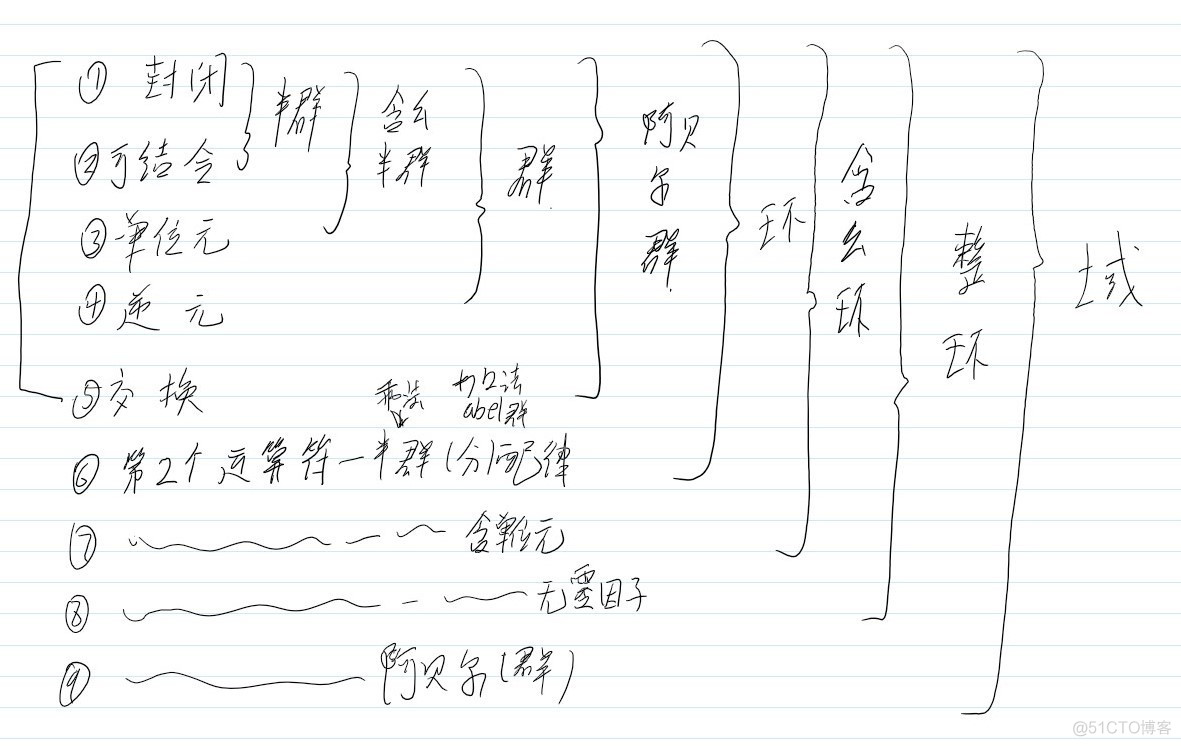 ① 封闭
②可结合
③单位元
④逆元
⑤交换
半群
含幺
半群
群
阿贝
尔
群
环
含
幺
环
整
环
域
乘法
加法
abel群
⑥ 第2个运算符一半群(分)配律
⑦ 含单位元
⑧ 无零因子
⑨ 阿贝尔(群)
@51CTO博客